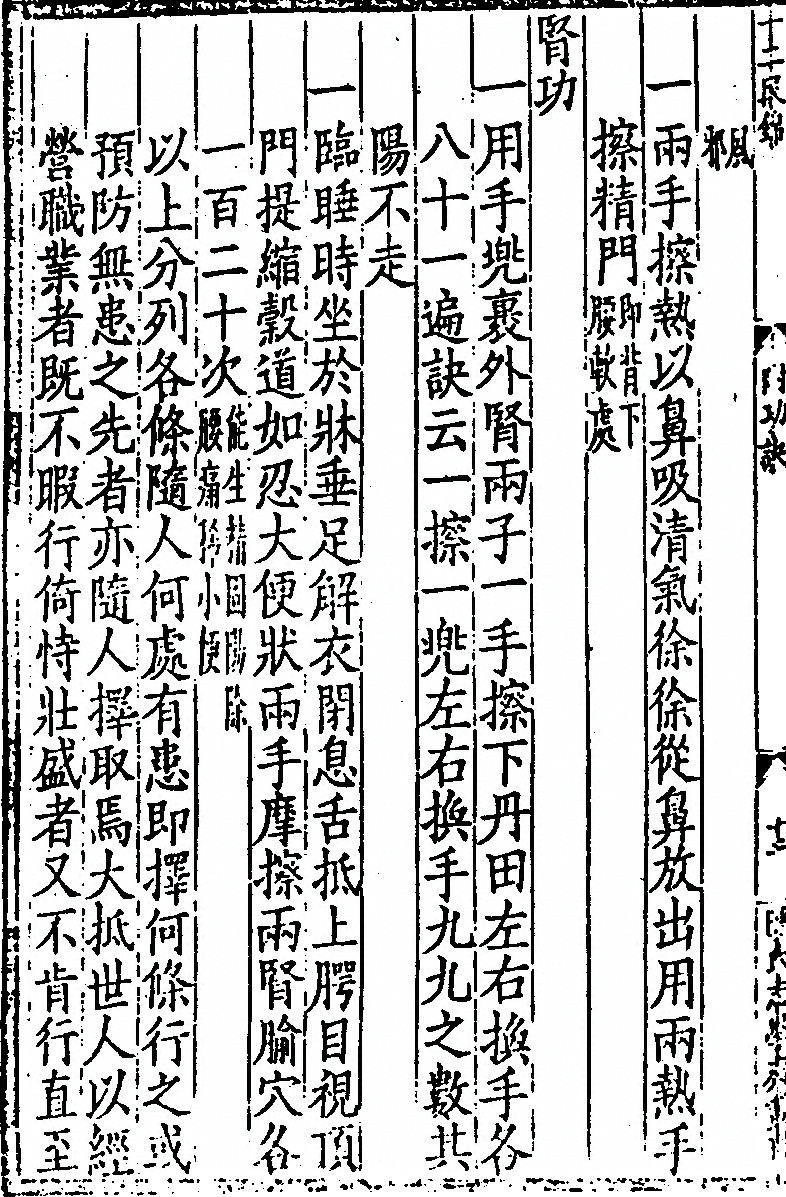 十二段錦
附功訣
十二
風
邪
一兩手擦熱以鼻吸清氣徐徐從鼻放出用兩熱手
擦精門即背下腰軟處
腎功
一用手兠裹外腎兩子一手擦下丹田左右換手各
八十一遍訣云一擦一兠左右換手九九之數其
陽不走
一臨睡時坐於牀垂足解衣閉息舌抵上腭目視頂
門提縮榖道如忍大便狀兩手摩擦兩腎腧穴各
一百二十次能生精固陽除腰痛稀小便
以上分列各條隨人何處有患即擇何條行之或
預防無患之先者亦隨人擇取焉大抵世人以經
營職業者既不暇行倚恃壯盛者又不肯行直至